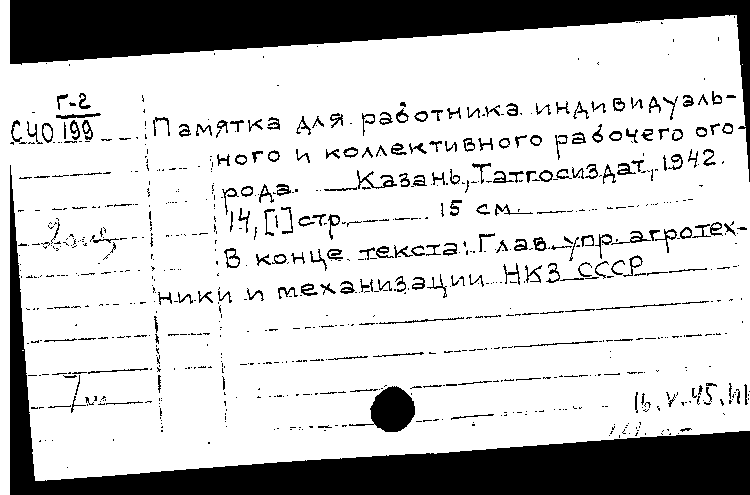 Г-2
С40 199
Памятка для работника индивидуаль-
ного и коллективного рабочего ого-
рода. Казань, Татгосиздат, 1942.
14, [1] стр. 15 см.
В конце текста: Глав. упр. агротех-
ники и механизации НКЗ СССР
16.V.45.